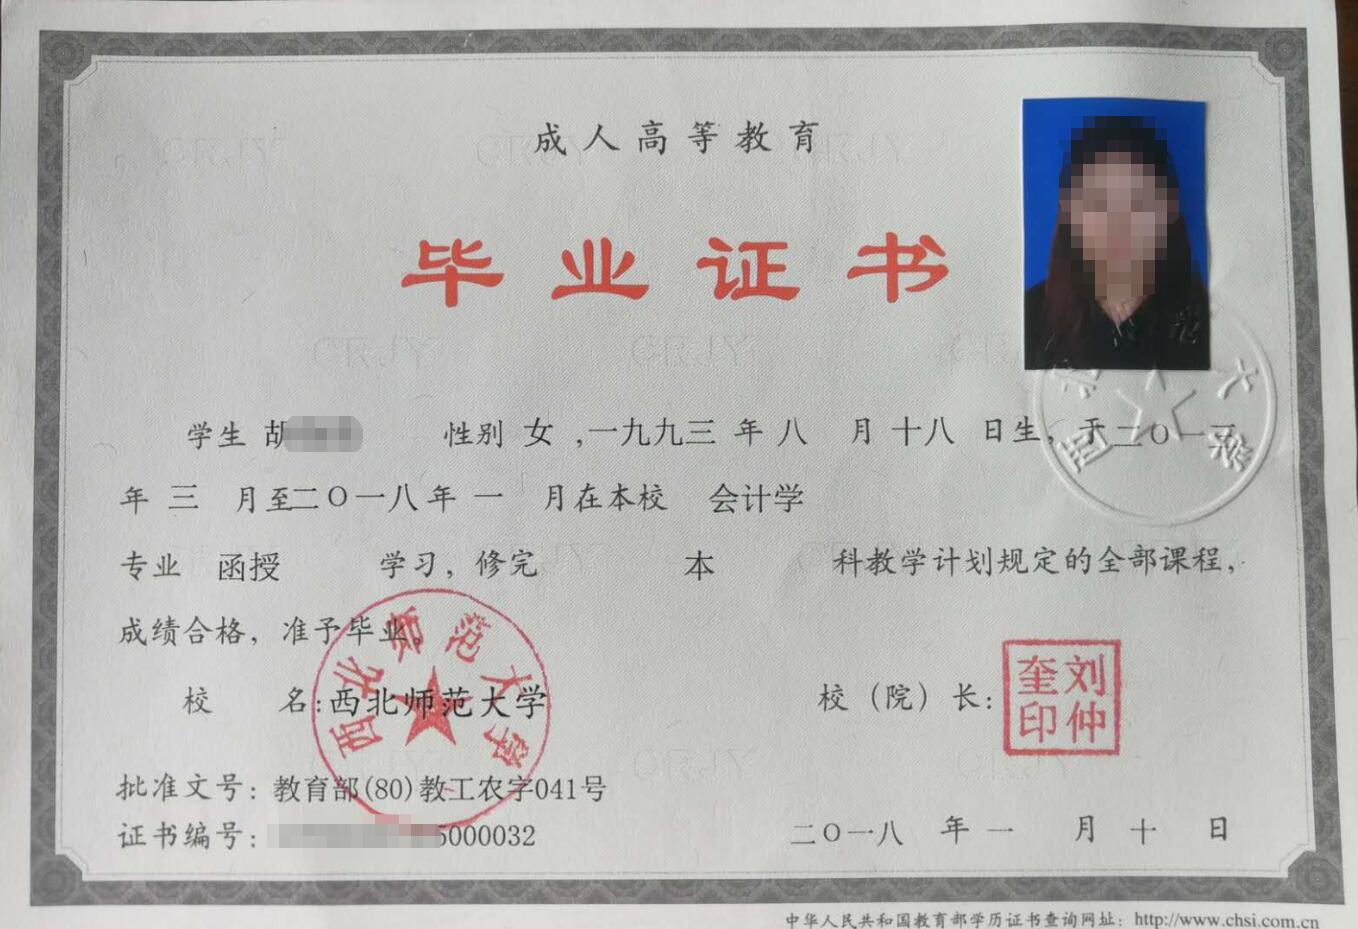 成人高等教育
毕业证书
学生 胡 性别 女 ,一九九三 年 八 月 十八 日生, 于二〇一
年 三 月至二〇一八年 一 月在本校 会计学
专业 函授 学习, 修完 本 科教学计划规定的全部课程,
成绩合格, 准予毕业。
校 名: 西北师范大学
西北师范大学
校 (院) 长:
刘仲奎印
批准文号: 教育部(80)教工农字041号
证书编号: 5000032
二〇一八 年 一 月 十 日
中华人民共和国教育部学历证书查询网址: http://www.chsi.com.cn